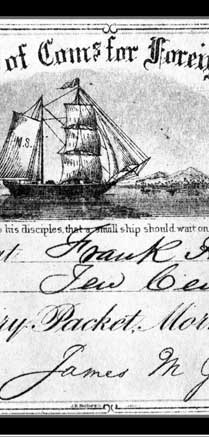 of Coms for Foreig
M.S.
his disciples, that a small ship should wait on
Frank
Ten Cen
ry Packet, Mor
James M. G